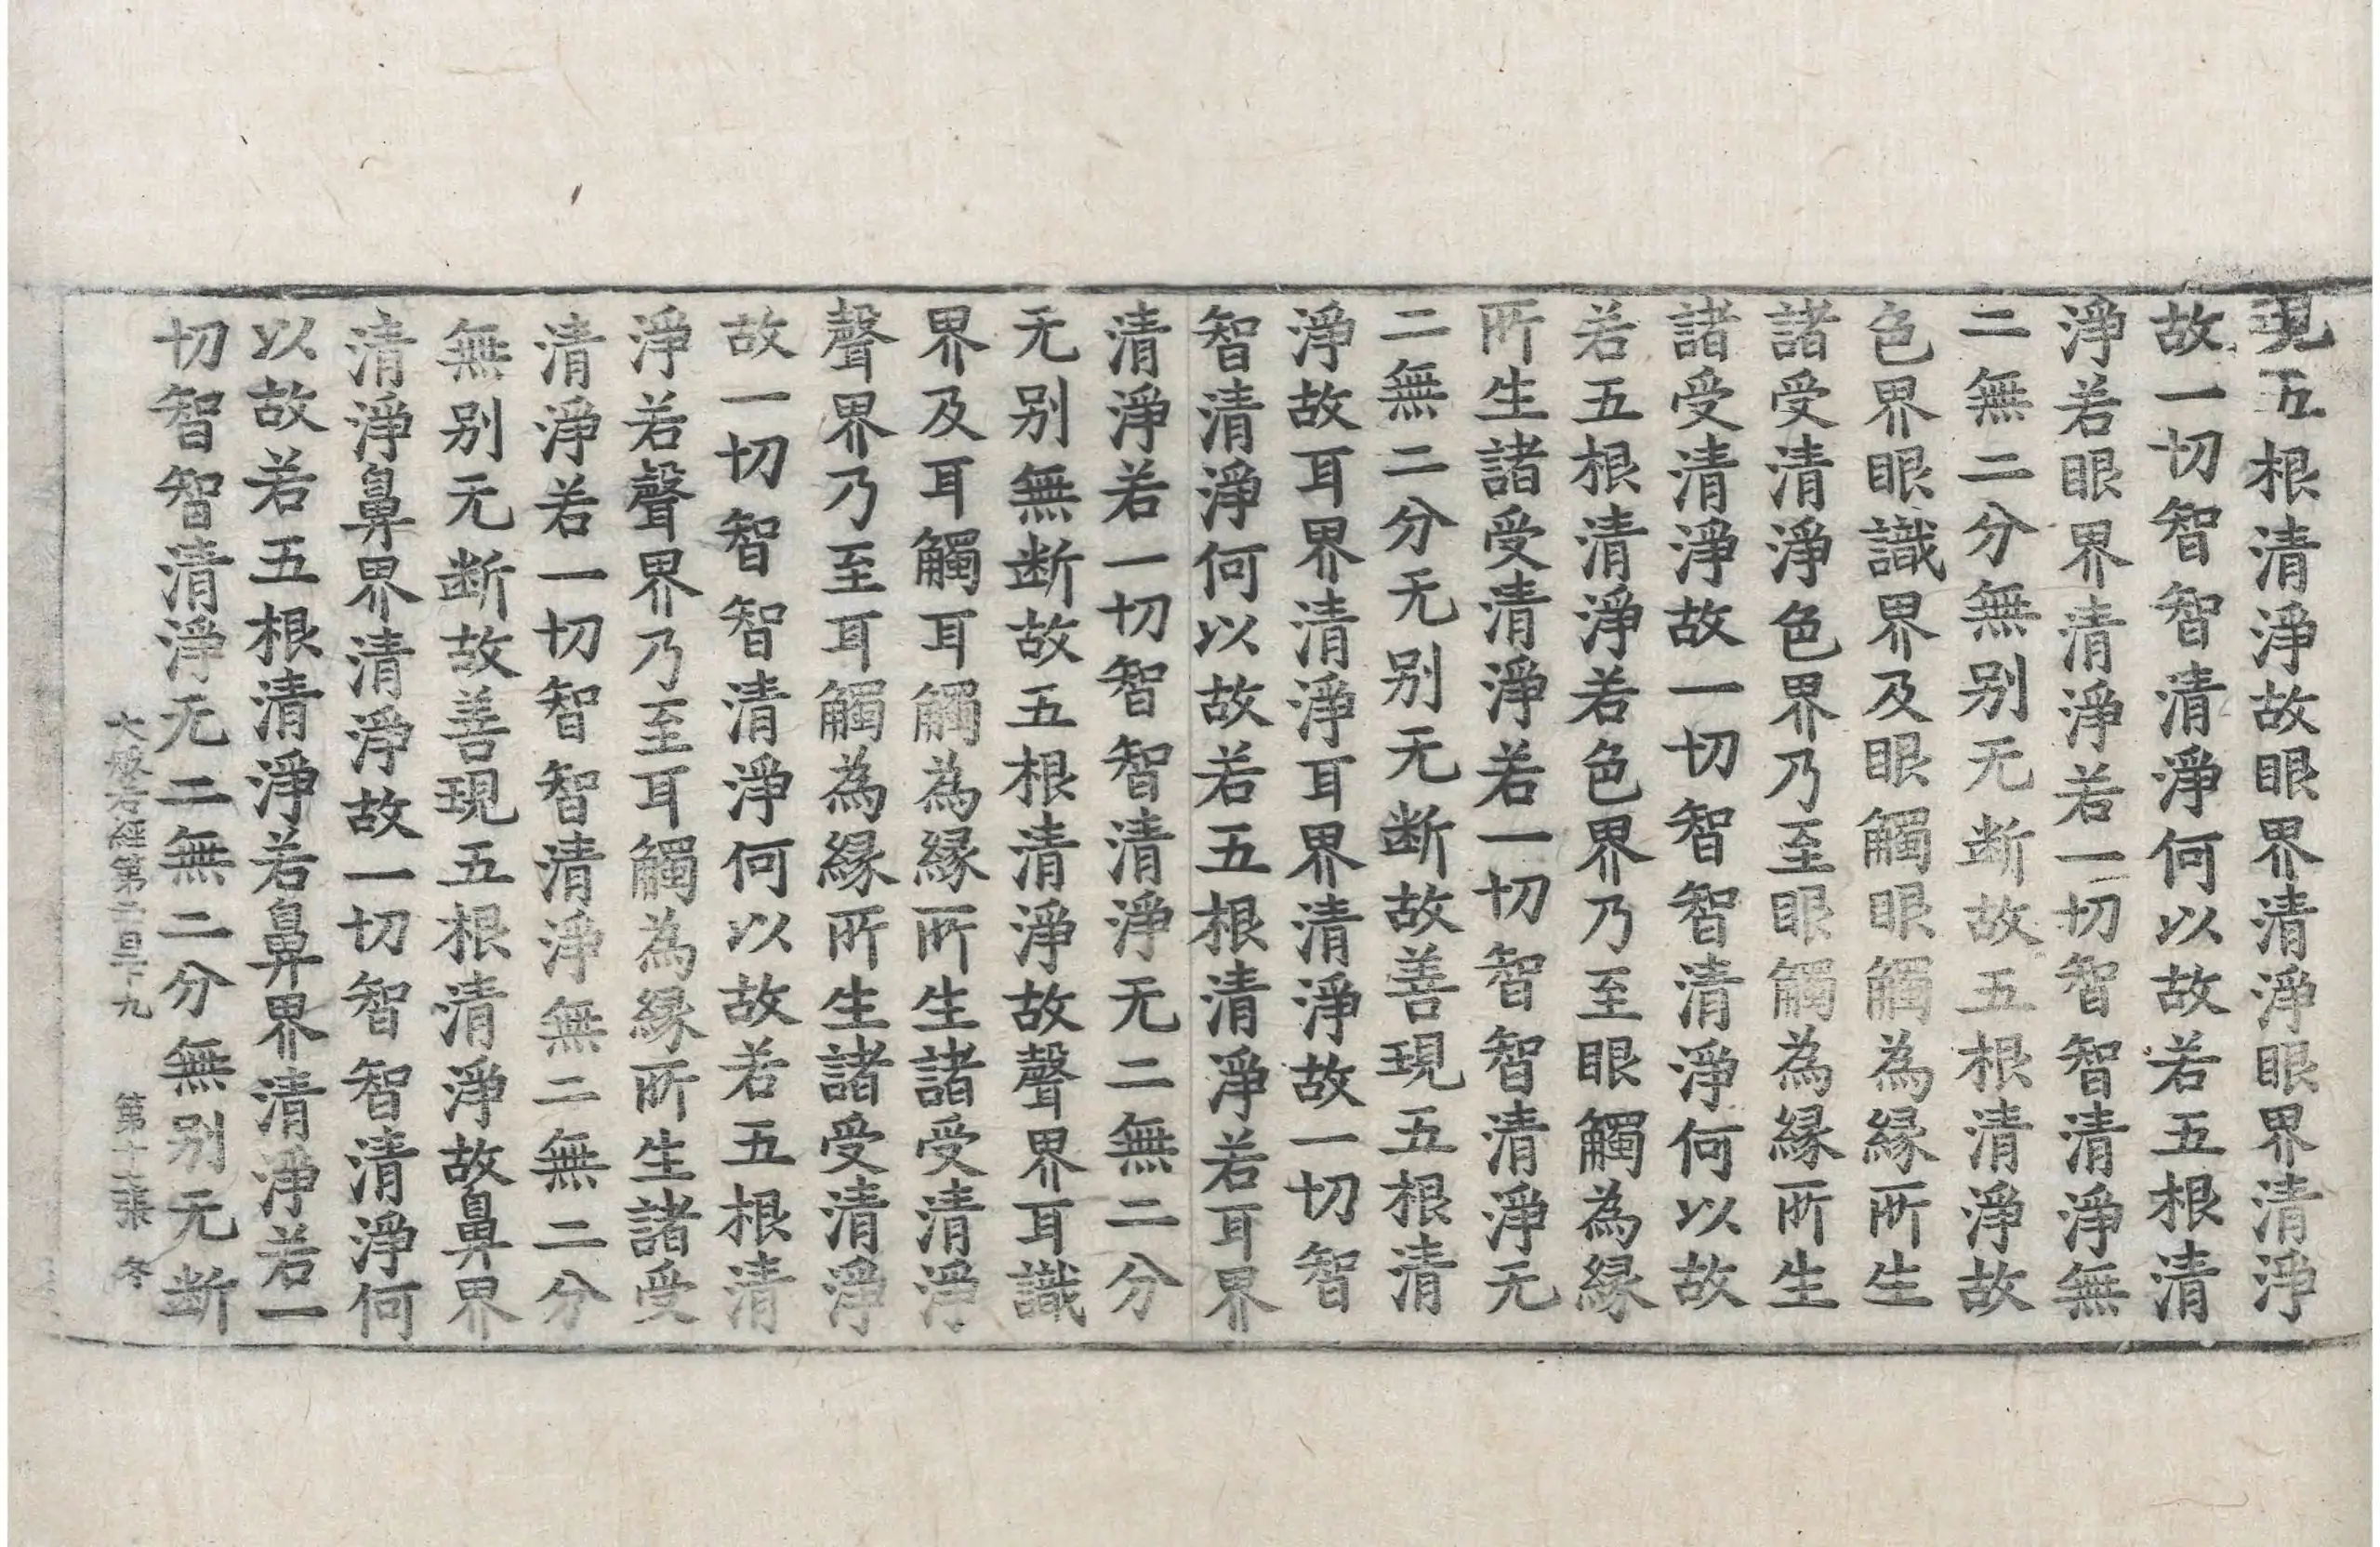 現五根清淨故眼界清淨眼界清淨
故一切智智清淨何以故若五根清
淨若眼界清淨若一切智智清淨無
二無二分無别无断故五根清淨故
色界眼識界及眼觸眼觸為縁所生
諸受清淨色界乃至眼觸為縁所生
諸受清淨故一切智智清淨何以故
若五根清淨若色界乃至眼觸為縁
所生諸受清淨若一切智智清淨无
二無二分无别无断故善現五根清
淨故耳界清淨耳界清淨故一切智
智清淨何以故若五根清淨若耳界
清淨若一切智智清淨无二無二分
无别無断故五根清淨故聲界耳識
界及耳觸耳觸為縁所生諸受清淨
聲界乃至耳觸為縁所生諸受清淨
故一切智智清淨何以故若五根清
淨若聲界乃至耳觸為縁所生諸受
清淨若一切智智清淨無二無二分
無别无断故善現五根清淨故鼻界
清淨鼻界清淨故一切智智清淨何
以故若五根清淨若鼻界清淨若一
切智智清淨无二無二分無别无断
大般若經第二百卅九 第十二張 冬